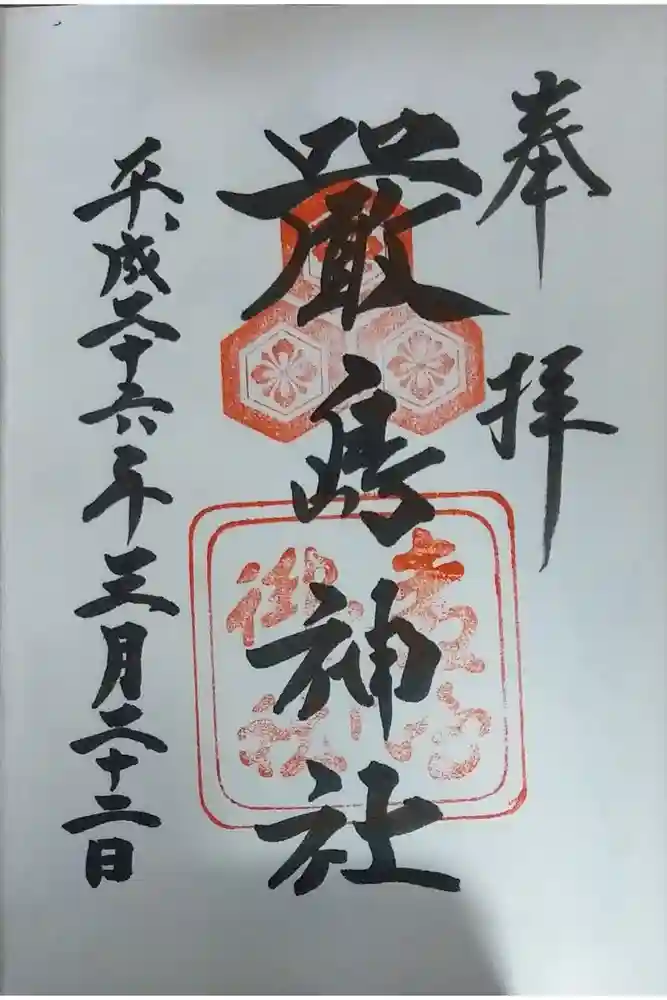 奉拝
嚴島神社
平成二十六年三月二十二日